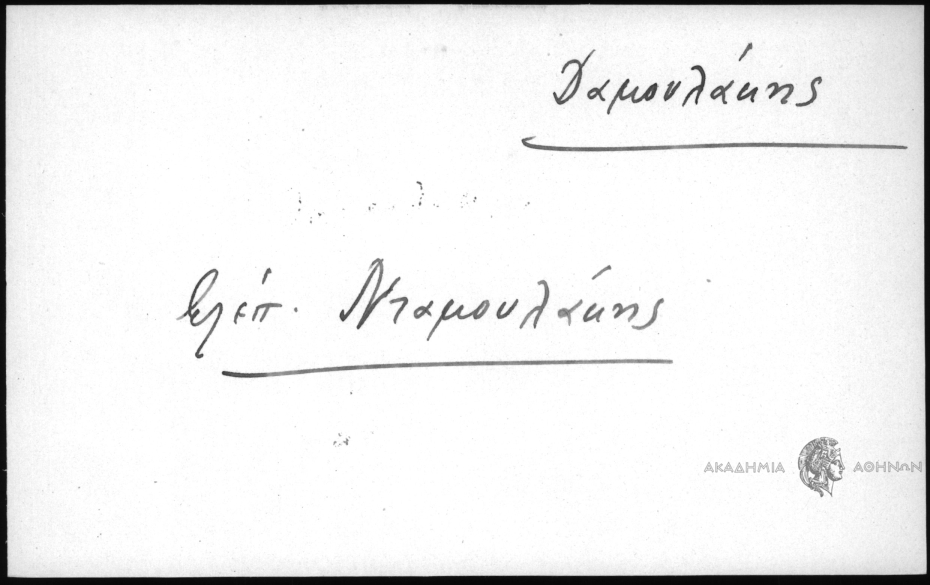 Δαμουλάκης
βλέπ. Νταμουλάκης
ΑΚΑΔΗΜΙΑ ΑΘΗΝΩΝ